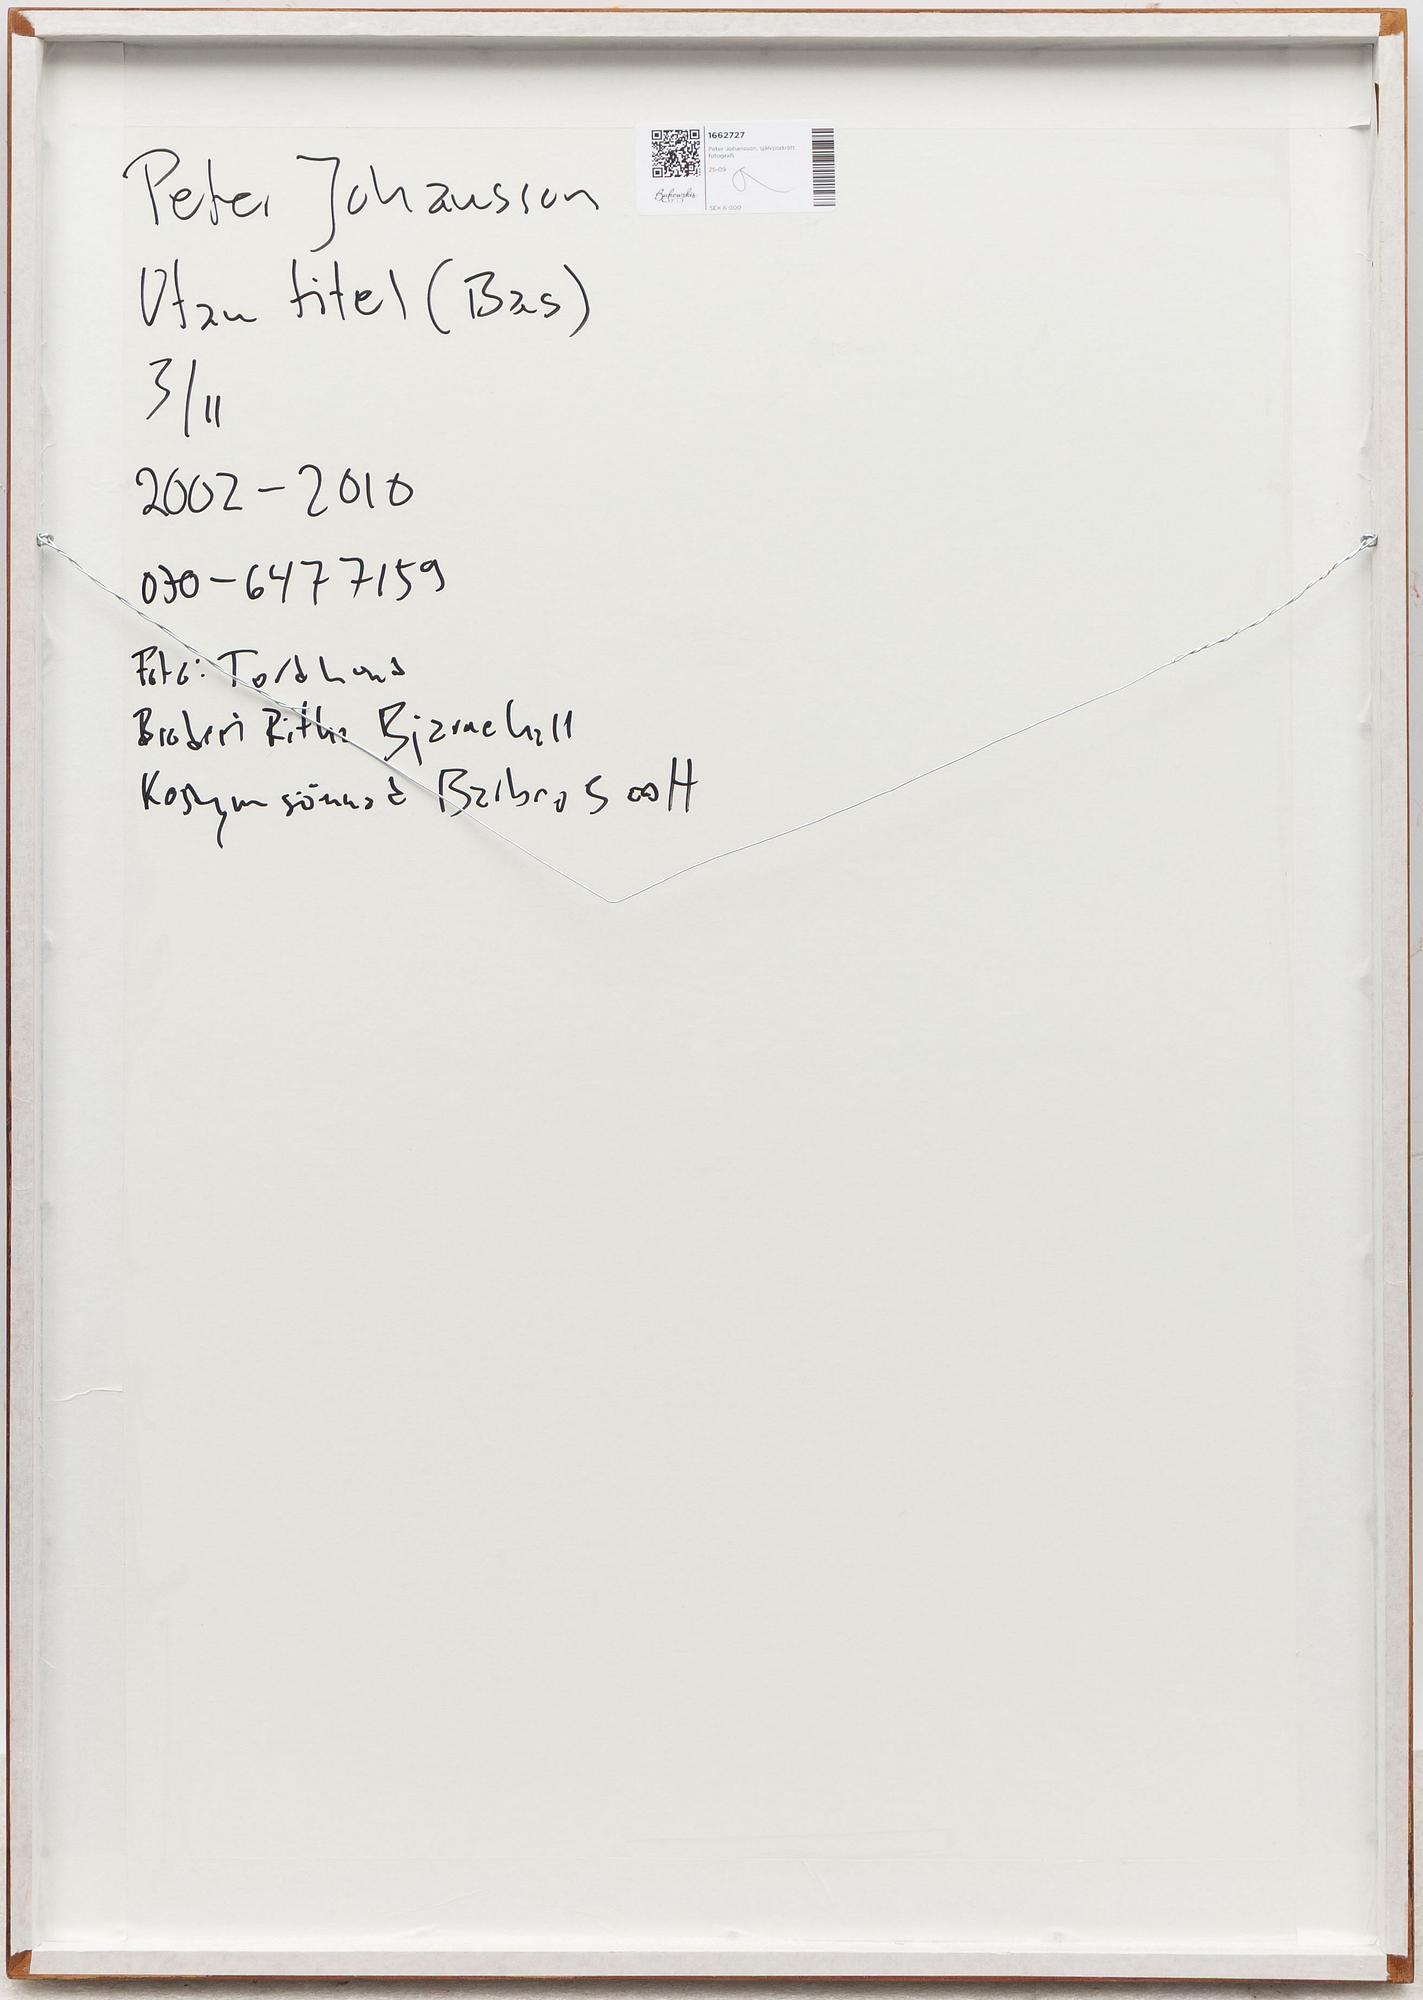 Peter Johansson
Utan titel (Bas)
3/11
2002-2010
070-6477159
Foto: Tord Lund
Broderi Ritha Bjarnehäll
Kostym sömnad Barbro S
1662727
Peter Johansson, självporträtt
fotografi
25-09
Bukowskis
SEK 6 000